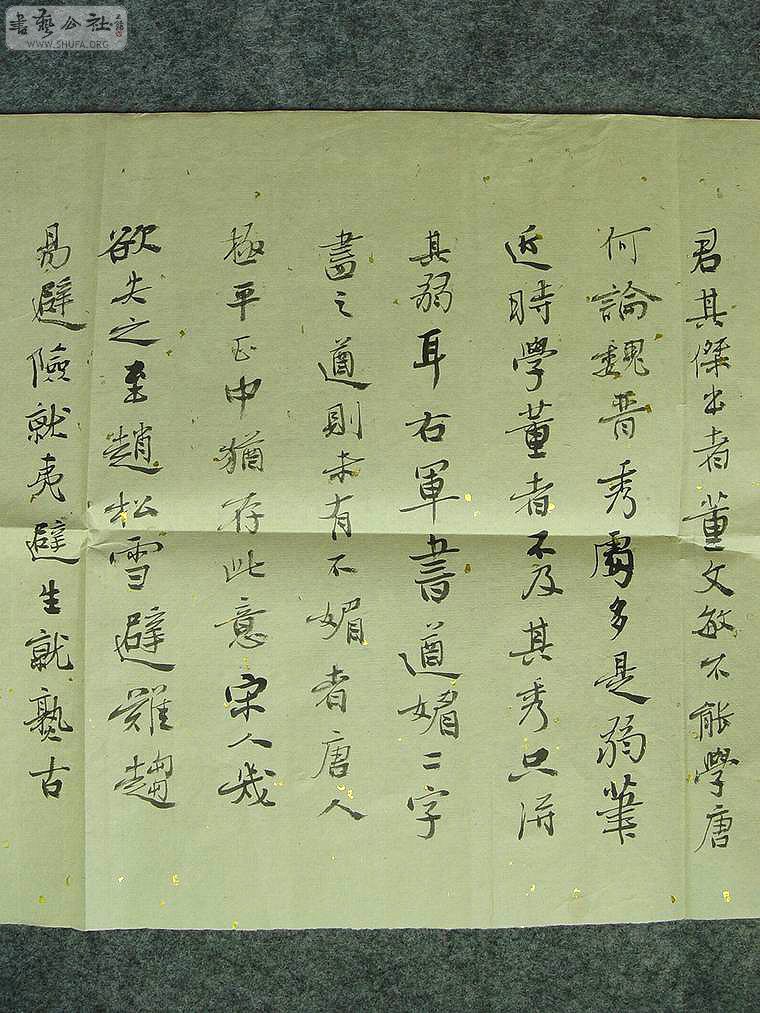 書藝公社
WWW.SHUFA.ORG
君其傑出者董文敏不能學唐
何論魏晉秀處多是弱筆
近時學董者不及其秀只濟
其弱耳右軍書遒媚二字
盡之遒則未有不媚者唐人
極平正中猶存此意宋人幾
欲失之至趙松雪避難趨
易避險就夷避生就熟古